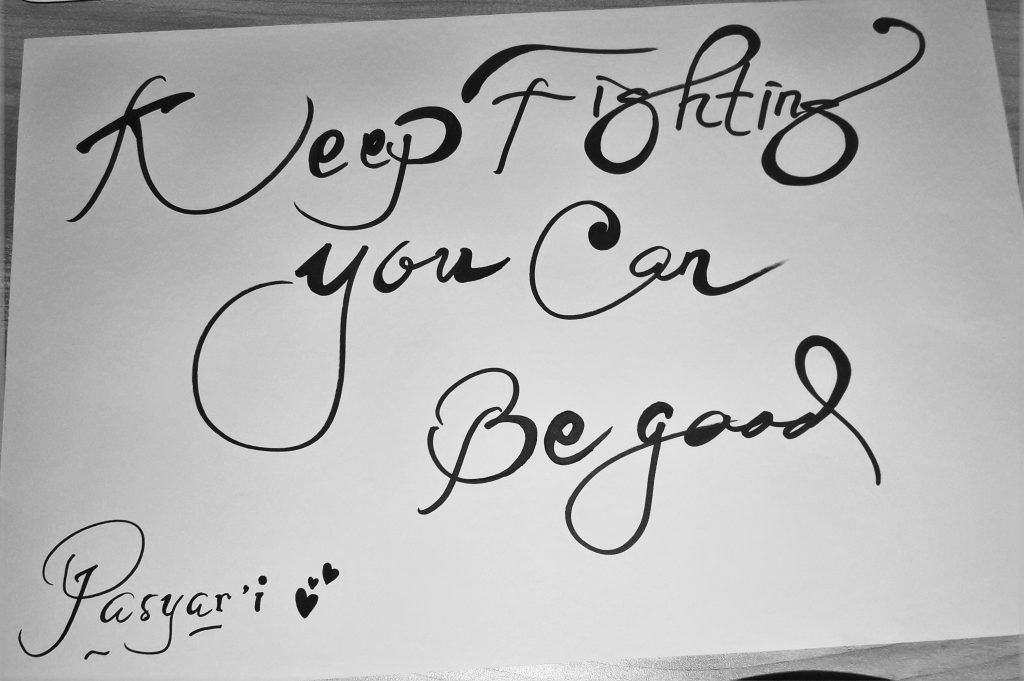 Keep Fighting
you Can
Be good
Pasyar'i